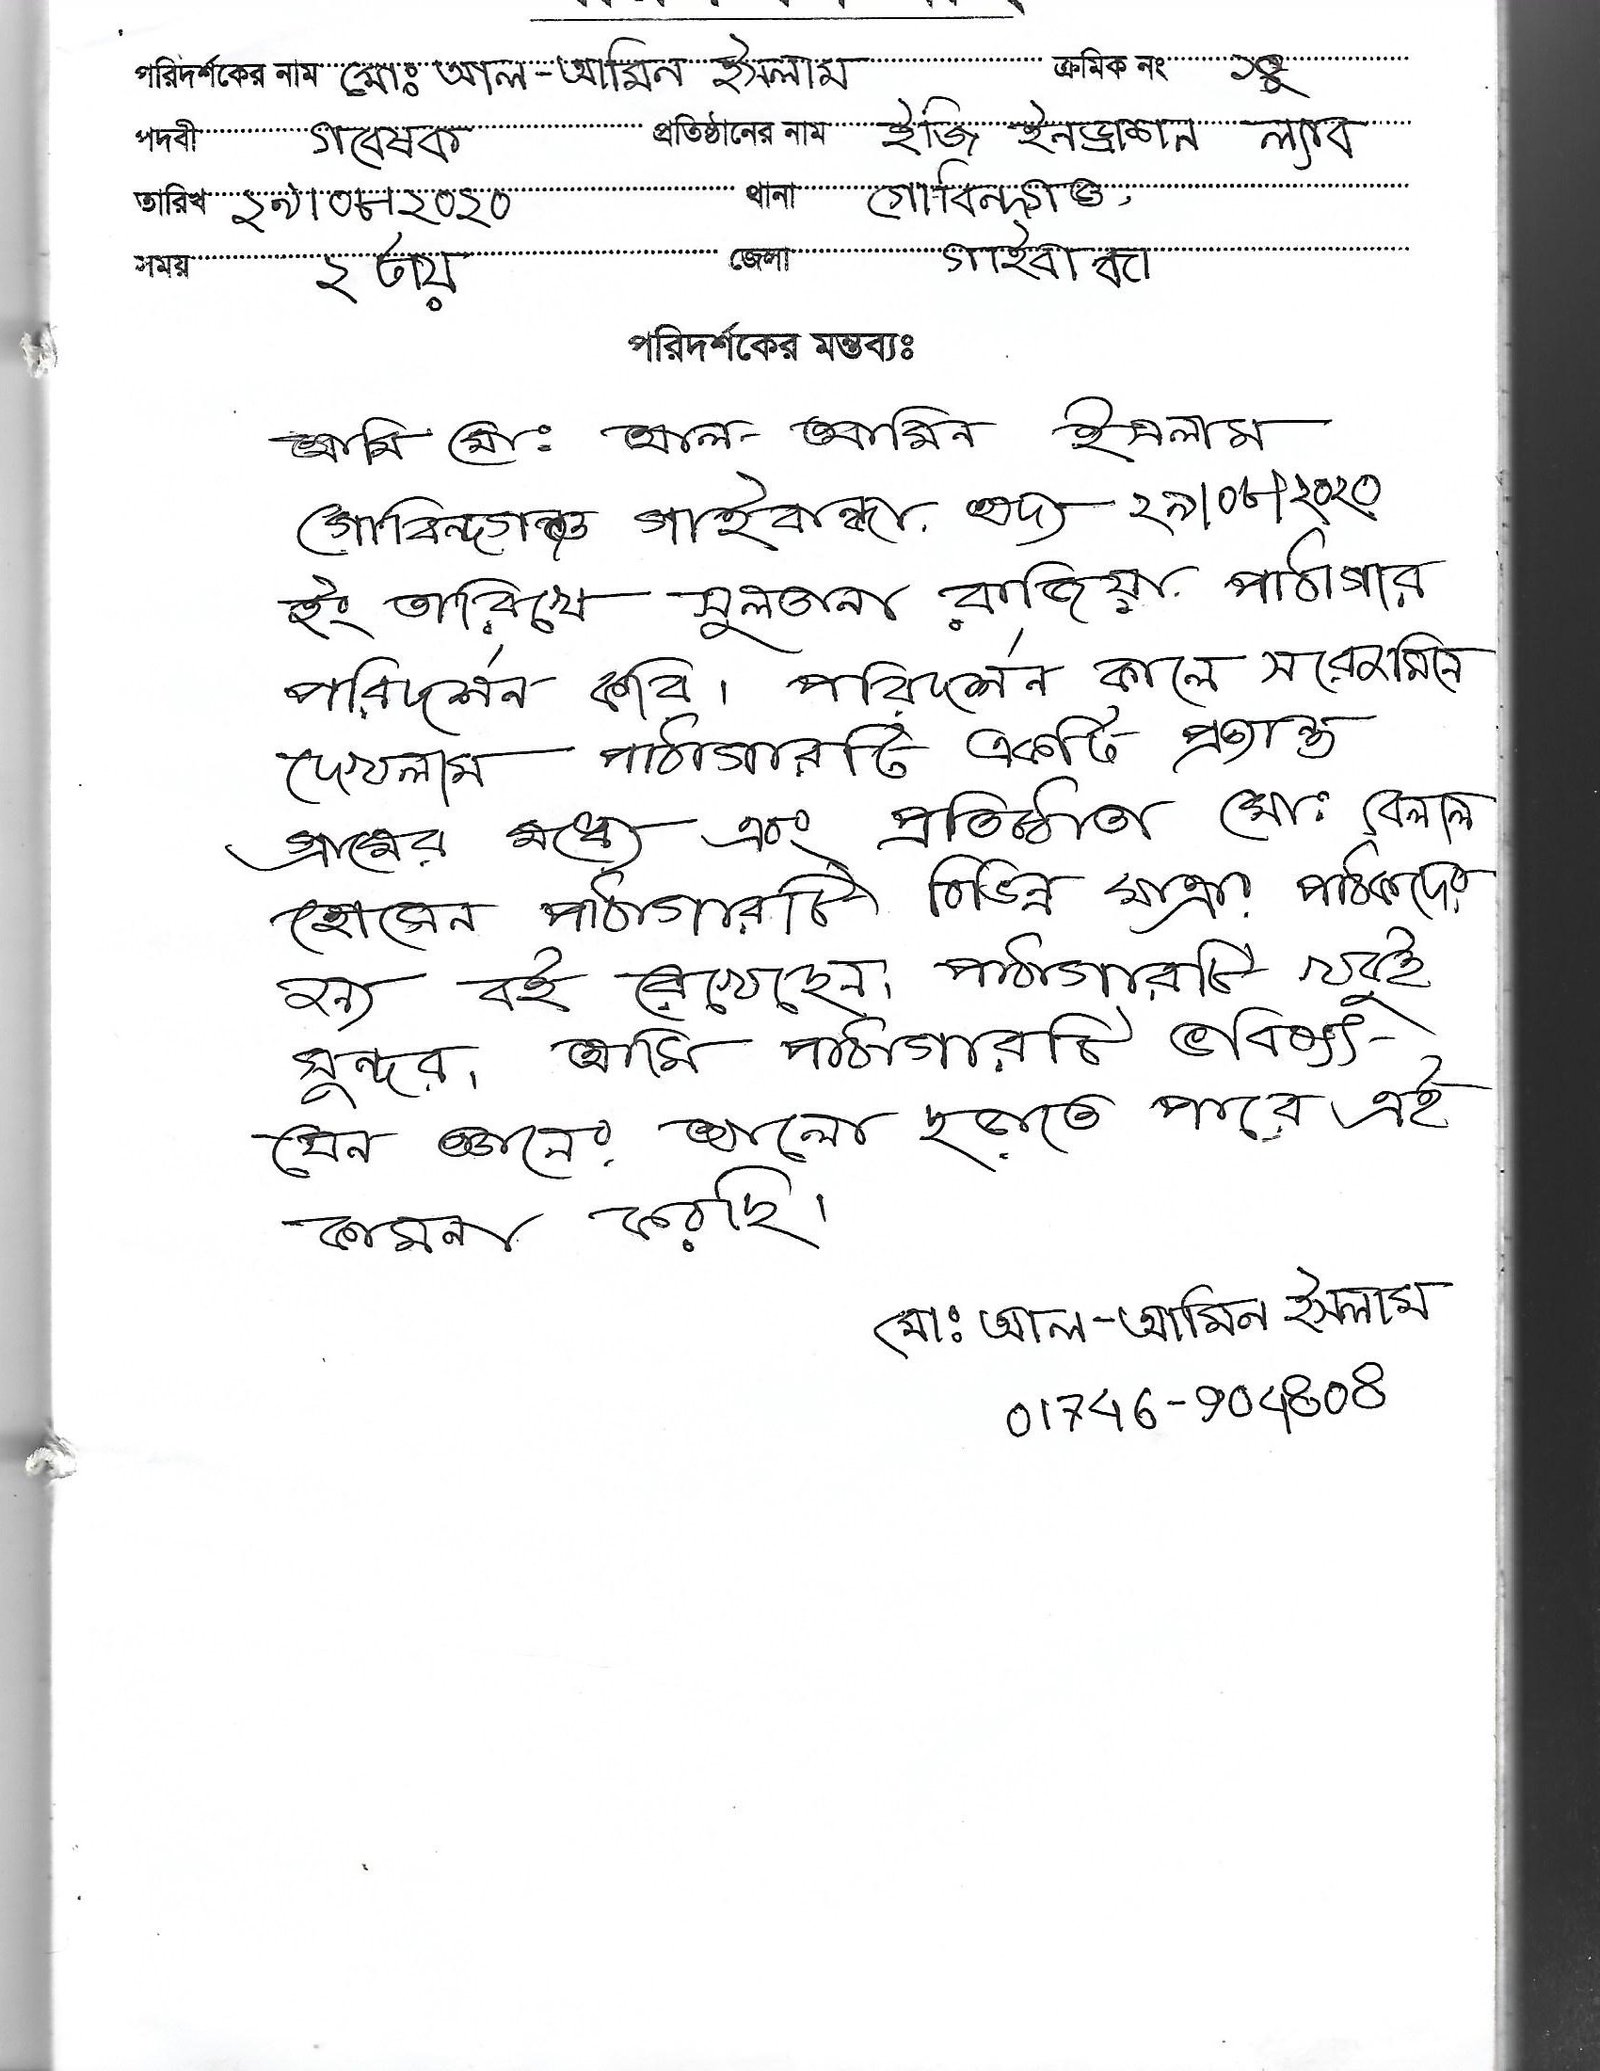 পরিদর্শকের নাম মোঃ আল-আমিন ইসলাম ক্রমিক নং
পদবী গবেষক প্রতিষ্ঠানের নাম ইজি ল্যাব
তারিখ ২৯/০৮/২০২০ থানা গোবিন্দগঞ্জ,
সময় ২ টায় জেলা গাইবান্ধা
পরিদর্শকের মন্তব্যঃ
আমি মোঃ আল-আমিন ইসলাম
গোবিন্দগঞ্জ গাইবান্ধা. অদ্য ২৯/০৮/২০২০
ইং তারিখে সুলতানা রাজিয়া পাঠাগার
পরিদর্শন করি। পরিদর্শন কালে সরেজমিনে
দেখলাম পাঠাগারটি একটি প্রত্যন্ত
গ্রামের মধ্যে এবং প্রতিষ্ঠাতা মোঃ বেলাল
হোসেন পাঠাগারটি বিভিন্ন পাঠকদের
জন্য বই রেখেছেন। পাঠাগারটি খুবই
সুন্দর। আমি পাঠাগারটি ভবিষ্যৎ-
যেন জ্ঞানের আলো ছড়াতে পারে এই
কামনা করছি।
মোঃ আল-আমিন ইসলাম
01746-904808